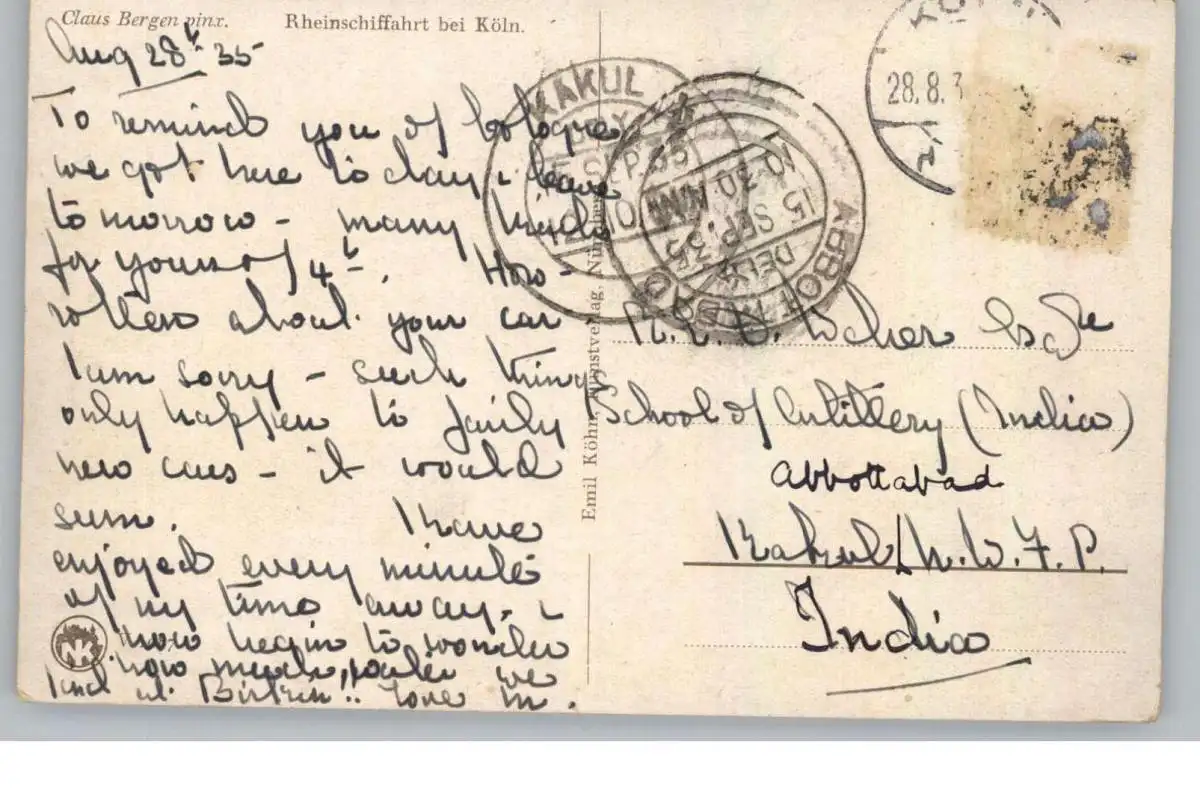 Claus Bergen pinx. Rheinschiffahrt bei Köln.
Aug 28th 35
To remind you of Cologne
we got here to day & leave
tomorrow - many thanks
for yours of 4th. How
rotten about your car
I am sorry - such things
only happen to fairly
new cars - it would
seem. Have
enjoyed every minute
of my time away, &
now begin to wonder
how much water we
find at !! Love M.
Emil Köhn, Kunstverlag, Nürnberg
KAKUL
SEP. 35
ABBOTTABAD
DELY.
15 SEP. 35
10·30 AM
28.8.3
Esqre
School of Artillery (India)
Abbottabad
Kakul N.W.F.P.
India
NK